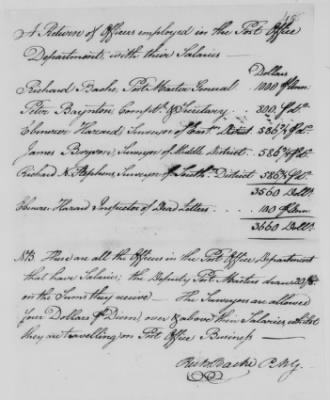 A Return of Officers employed in the Post Office
Department, with their Salaries
Dollars
Richard Bache, Post Master General 1000 P Ann
Peter Baynton, Compt. & Secretary
Ebenezer Hazard Surveyor of East District 586⅔
James Bryson, Surveyor of Middle District 586⅔
Richard N. Stephens, Surveyor of South District 586⅔
3560 Doll
Ebenr. Hazard Inspector of Dead Letters 100 P Ann
3660 Doll
NB. These are all the Officers in the Post Office Department
that have Salaries; the Deputy Post Masters draw 20 P Ct
on the Sums they receive — The Surveyors are allowed
four Dollars P Diem, over & above their Salaries, whilst
they are travelling on Post Office Business
Richd Bache P. M. G.